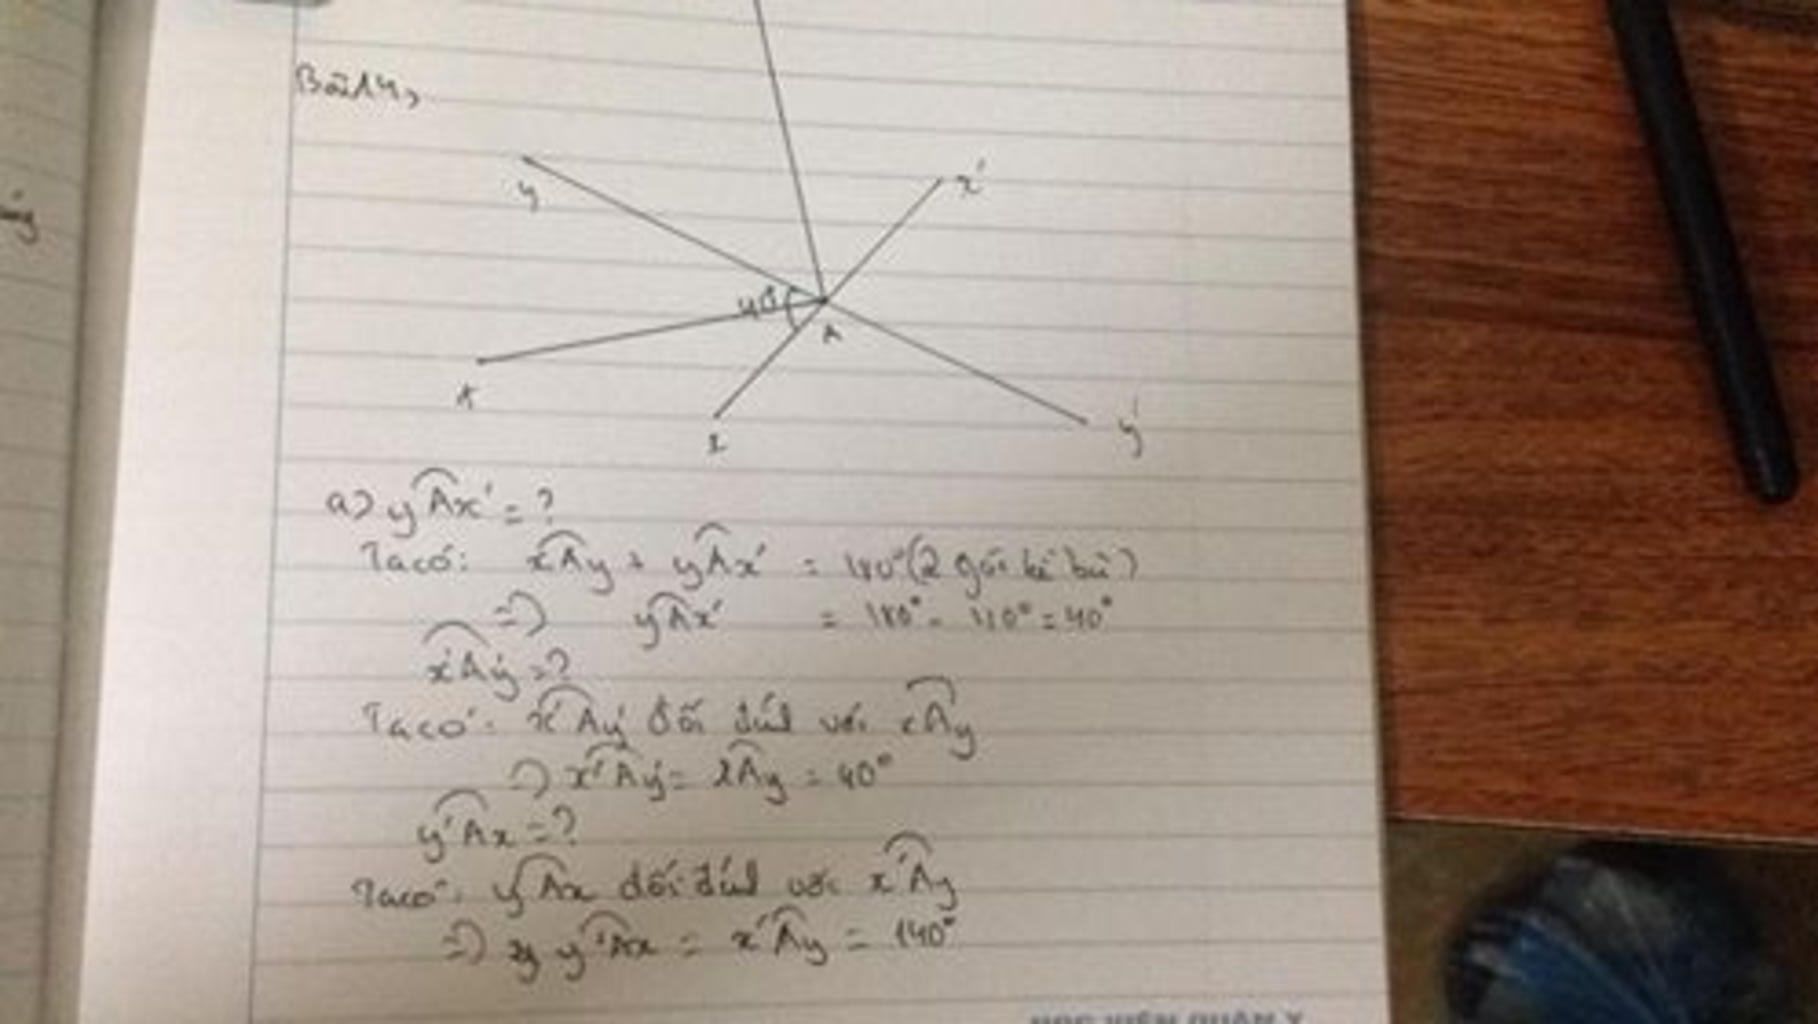 Bài 14,
y
x'
40°
A
t
x
y'
a) yAx' = ?
Ta có: xAy + yAx' = 180° (2 góc kề bù)
=> yAx' = 180° - 140° = 40°
x'Ay' = ?
Ta có: x'Ay' đối đỉnh với xAy
=> x'Ay' = xAy = 40°
y'Ax = ?
Ta có: y'Ax đối đỉnh với x'Ay
=> y'Ax = x'Ay = 140°
HỌC VIỆN QUÂN Y